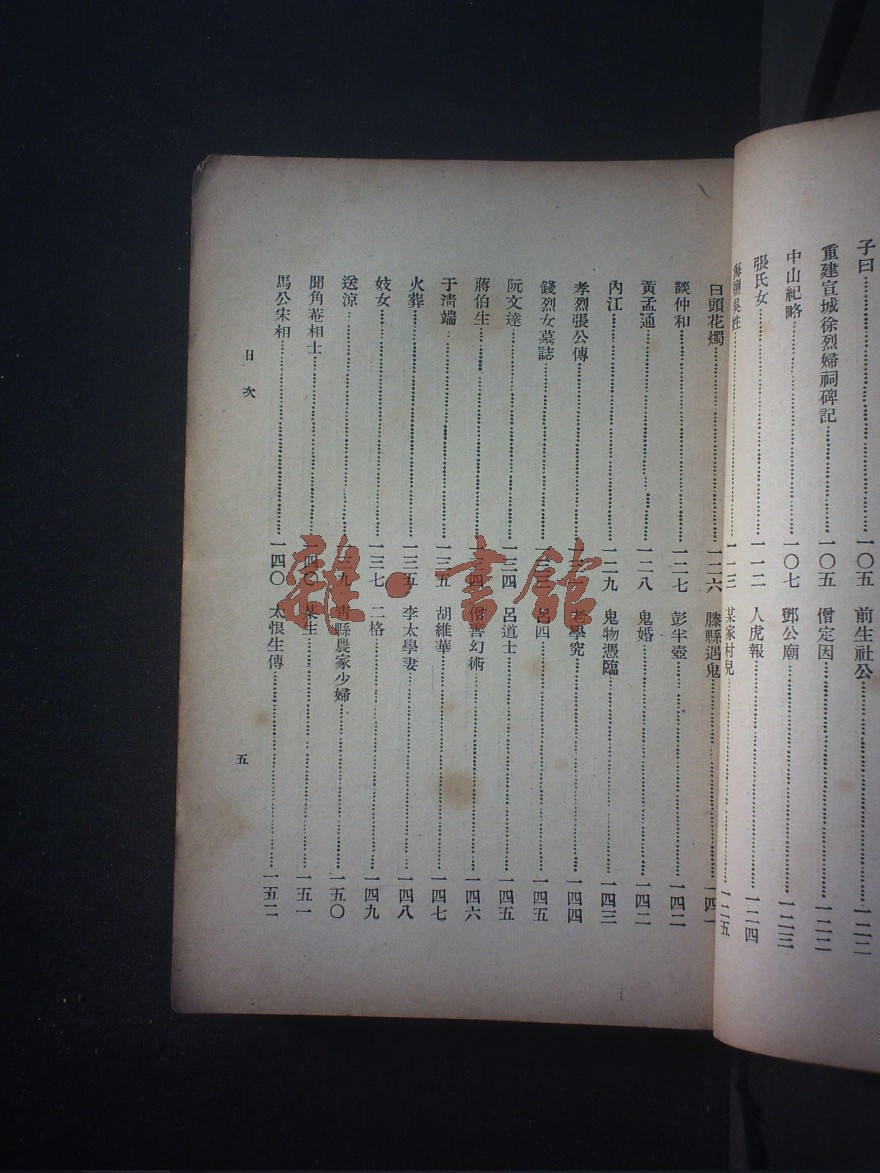 子曰……一〇五
重建宣城徐烈婦祠碑記……一〇五
中山紀略……一〇七
張氏女……一一二
海鹽吳姓……一一三
前生社公……一二二
僧定因……一二二
鄧公廟……一二三
人虎報……一二四
某家村兒……一二五
白頭花燭……一二六
談仲和……一二七
黃孟通……一二八
內江……一二九
孝烈張公傳……
錢烈女墓誌……
阮文達……一三四
蔣伯生……一三四
于清端……一三五
火葬……一三五
妓女……一三七
送涼……一三九
聞角菴相士……一四〇
馬公宋相……一四〇
滕縣遇鬼……一四一
彭半壺……一四二
鬼婚……一四二
鬼物憑臨……一四三
老學究……一四四
呂四……一四五
呂道士……一四五
僧善幻術……一四六
胡維華……一四七
李太學妻……一四八
二格……一四九
青縣農家少婦……一五〇
某生……一五一
太恨生傳……一五二
目次
五
雜·書館